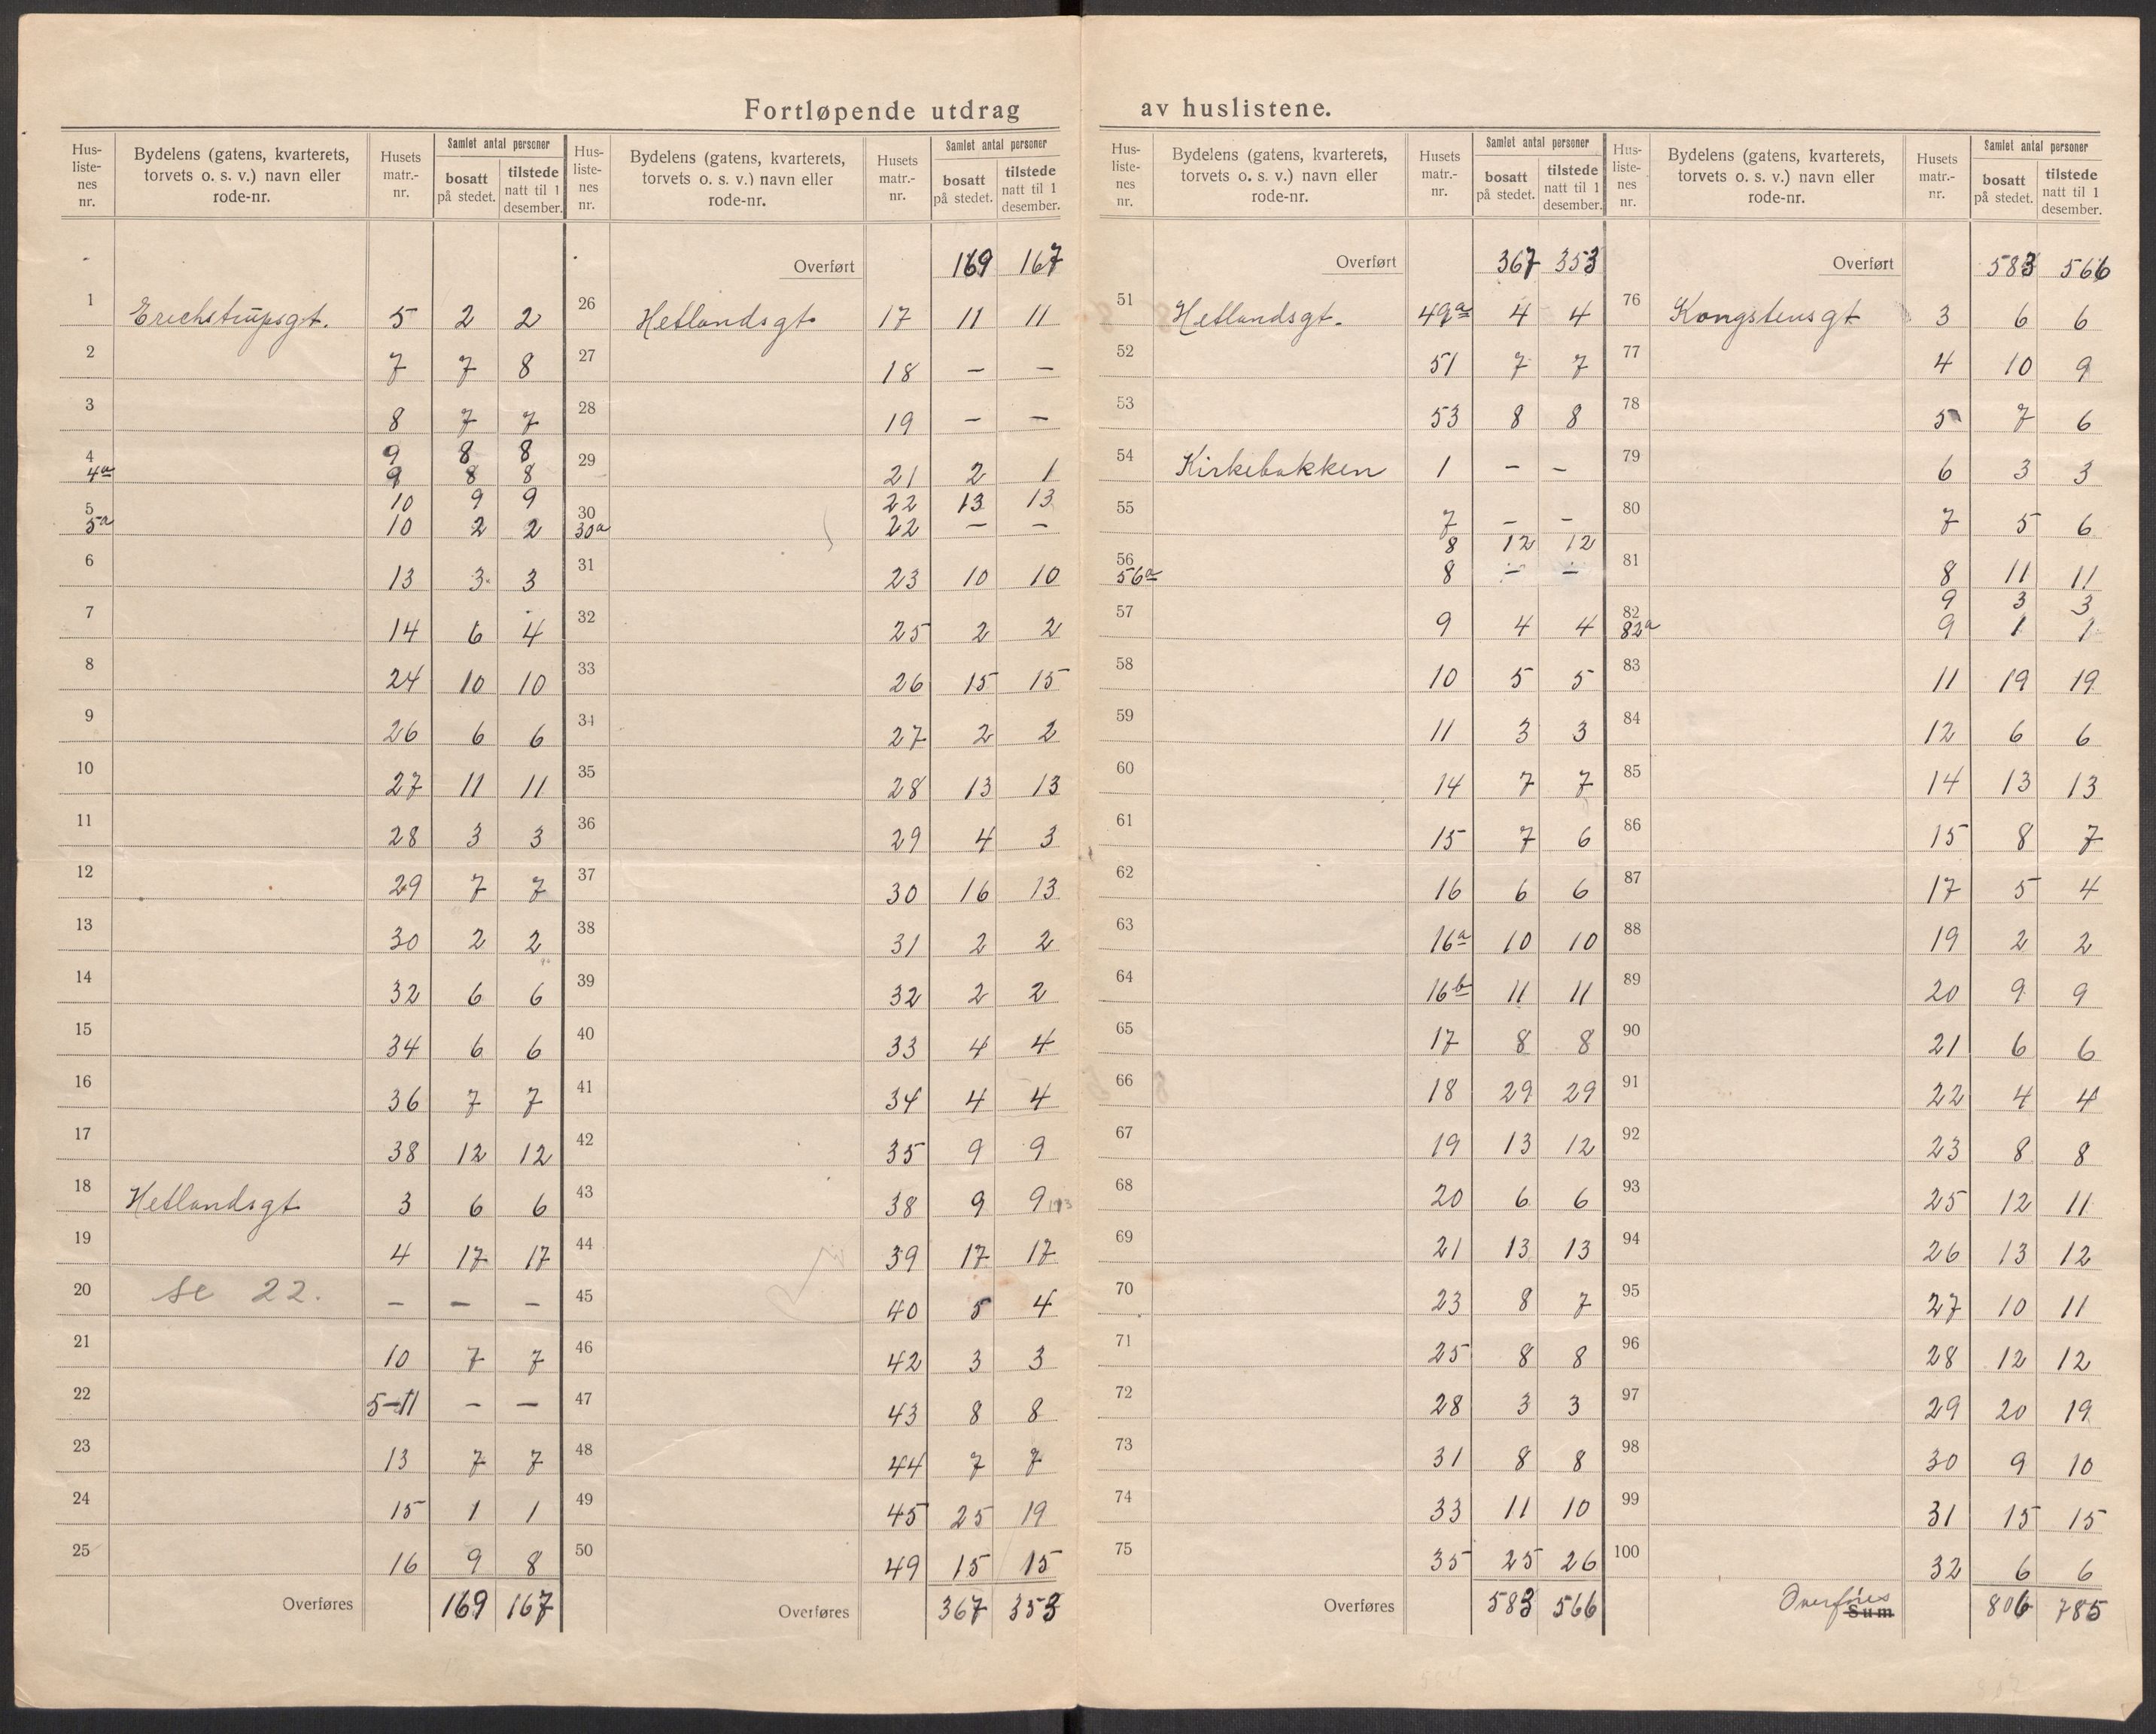 Fortløpende utdrag av huslistene.
Hus-liste-nes nr. | Bydelens (gatens, kvarterets, torvets o. s. v.) navn eller rode-nr. | Husets matr.-nr. | Samlet antal personer bosatt på stedet. | tilstede natt til 1 desember.
1 Erichstrupsgt. 5 2 2
2 7 7 8
3 8 7 7
4 9 8 8
4a 9 8 8
5 10 9 9
5a 10 2 2
6 13 3 3
7 14 6 4
8 24 10 10
9 26 6 6
10 27 11 11
11 28 3 3
12 29 7 7
13 30 2 2
14 32 6 6
15 34 6 6
16 36 7 7
17 38 12 12
18 Hetlandsgt 3 6 6
19 4 17 17
20 se 22. — — —
21 10 7 7
22 5-11 — —
23 13 7 7
24 15 1 1
25 16 9 8
Overføres 169 167
Hus-liste-nes nr. | Bydelens (gatens, kvarterets, torvets o. s. v.) navn eller rode-nr. | Husets matr.-nr. | Samlet antal personer bosatt på stedet. | tilstede natt til 1 desember.
Overført 169 167
26 Hetlandsgt. 17 11 11
27 18 — —
28 19 — —
29 21 2 1
30 22 13 13
30a 22 — —
31 23 10 10
32 25 2 2
33 26 15 15
34 27 2 2
35 28 13 13
36 29 4 3
37 30 16 13
38 31 2 2
39 32 2 2
40 33 4 4
41 34 4 4
42 35 9 9
43 38 9 9
44 39 17 17
45 40 5 4
46 42 3 3
47 43 8 8
48 44 7 7
49 45 25 19
50 49 15 15
Overføres 367 353
Hus-liste-nes nr. | Bydelens (gatens, kvarterets, torvets o. s. v.) navn eller rode-nr. | Husets matr.-nr. | Samlet antal personer bosatt på stedet. | tilstede natt til 1 desember.
Overført 367 353
51 Hetlandsgt. 49a 4 4
52 51 7 7
53 53 8 8
54 Kirkebakken 1 — —
55 7 — —
56 8 12 12
56a 8 — —
57 9 4 4
58 10 5 5
59 11 3 3
60 14 7 7
61 15 7 6
62 16 6 6
63 16a 10 10
64 16b 11 11
65 17 8 8
66 18 29 29
67 19 13 12
68 20 6 6
69 21 13 13
70 23 8 7
71 25 8 8
72 28 3 3
73 31 8 8
74 33 11 10
75 35 25 26
Overføres 583 566
Hus-liste-nes nr. | Bydelens (gatens, kvarterets, torvets o. s. v.) navn eller rode-nr. | Husets matr.-nr. | Samlet antal personer bosatt på stedet. | tilstede natt til 1 desember.
Overført 583 566
76 Kongstensgt 3 6 6
77 4 10 9
78 5 7 6
79 6 3 3
80 7 5 6
81 8 11 11
82 9 3 3
82a 9 1 1
83 11 19 19
84 12 6 6
85 14 13 13
86 15 8 7
87 17 5 4
88 19 2 2
89 20 9 9
90 21 6 6
91 22 4 4
92 23 8 8
93 25 12 11
94 26 13 12
95 27 10 11
96 28 12 12
97 29 20 19
98 30 9 10
99 31 15 15
100 32 6 6
Overføres Sum 806 785